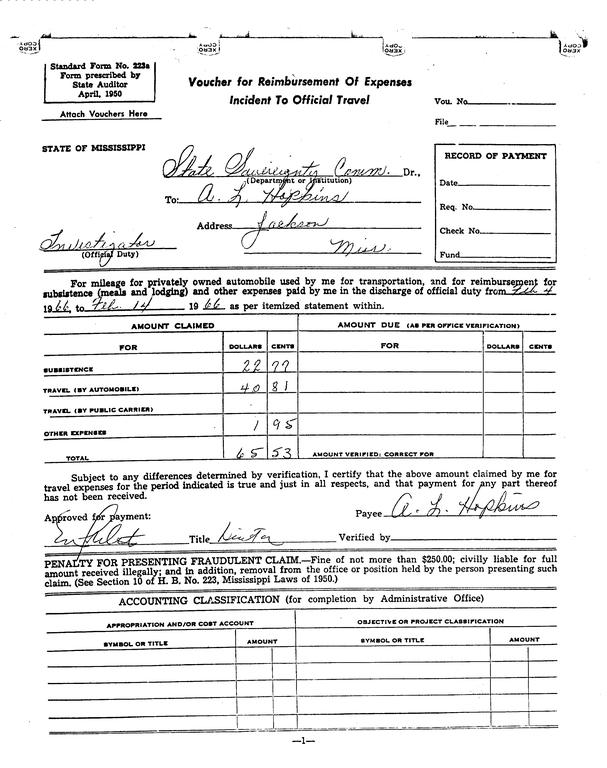 XERO COPY
XERO COPY
XERO COPY
XERO COPY
Standard Form No. 223a
Form prescribed by
State Auditor
April, 1950
Attach Vouchers Here
Voucher for Reimbursement Of Expenses
Incident To Official Travel
Vou. No.
File
STATE OF MISSISSIPPI
State Sovereignty Comm. Dr.,
(Department or Institution)
To: A. L. Hopkins
Address Jackson
Miss.
Investigator
(Official Duty)
RECORD OF PAYMENT
Date
Req. No.
Check No.
Fund
For mileage for privately owned automobile used by me for transportation, and for reimbursement for
subsistence (meals and lodging) and other expenses paid by me in the discharge of official duty from Feb 4
1966, to Feb. 14 1966 as per itemized statement within.
AMOUNT CLAIMED AMOUNT DUE (AS PER OFFICE VERIFICATION)
FOR DOLLARS CENTS FOR DOLLARS CENTS
SUBSISTENCE 22 77
TRAVEL (BY AUTOMOBILE) 40 81
TRAVEL (BY PUBLIC CARRIER)
OTHER EXPENSES 1 95
TOTAL 65 53 AMOUNT VERIFIED: CORRECT FOR
Subject to any differences determined by verification, I certify that the above amount claimed by me for
travel expenses for the period indicated is true and just in all respects, and that payment for any part thereof
has not been received.
Approved for payment:
Payee A. L. Hopkins
Title Verified by
PENALTY FOR PRESENTING FRAUDULENT CLAIM.—Fine of not more than $250.00; civilly liable for full
amount received illegally; and in addition, removal from the office or position held by the person presenting such
claim. (See Section 10 of H. B. No. 223, Mississippi Laws of 1950.)
ACCOUNTING CLASSIFICATION (for completion by Administrative Office)
APPROPRIATION AND/OR COST ACCOUNT OBJECTIVE OR PROJECT CLASSIFICATION
SYMBOL OR TITLE AMOUNT SYMBOL OR TITLE AMOUNT
—1—